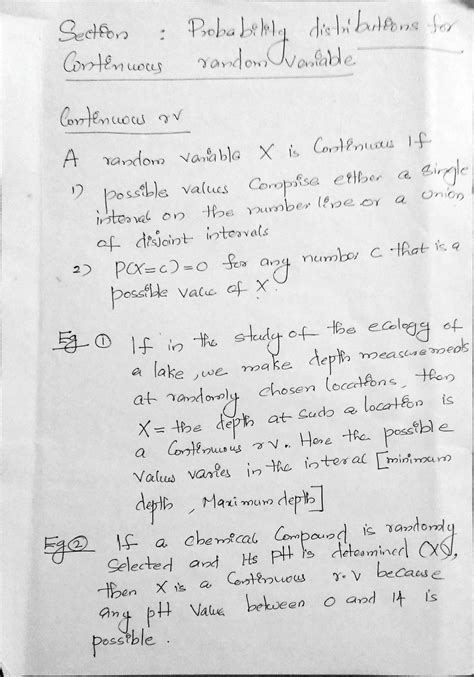 Section : Probability distributions for
Continuous random variable
Continuous rv
A random variable X is Continuous If
1) possible values Comprise either a single
interval on the number line or a union
of disjoint intervals
2) P(X=c)=0 for any number c that is a
possible value of X.
Eg ① If in the study of the ecology of
a lake, we make depth measurements
at randomly chosen locations, then
X = the depth at such a location is
a Continuous rv. Here the possible
values varies in the interal [minimum
depth, Maximum depth]
Eg ② If a chemical Compound is randomly
selected and its pH is determined (X),
then X is a Continuous r.v because
any pH value between 0 and 14 is
possible.